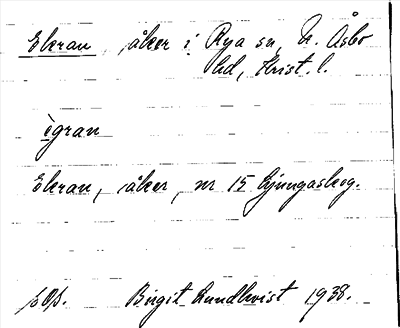 Ekran, åker i Rya sn, N. Åsbo
hd, Krist. l.
ègran
Ekran, åker, nr 15 Ljungaskog.
Birgit Lundkvist 1938.